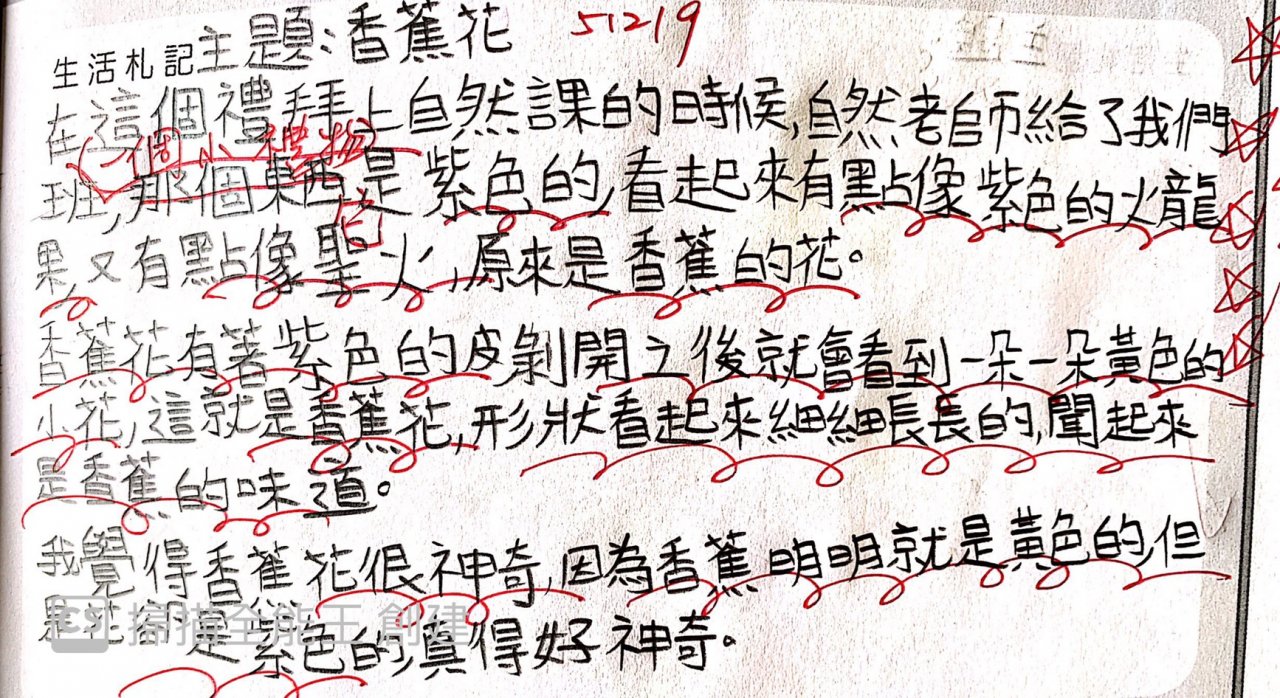 生活札記主題：香蕉花 51219
在這個禮拜上自然課的時候,自然老師給了我們
一個小禮物
班,那個東西是紫色的,看起來有點像紫色的火龍
果,又有點像聖火,原來是香蕉的花。
香蕉花有著紫色的皮剝開之後就會看到一朵一朵黃色的
小花,這就是香蕉花,形狀看起來細細長長的,聞起來
是香蕉的味道。
我覺得香蕉花很神奇,因為香蕉明明就是黃色的,但
是花卻是紫色的,真得好神奇。
CS 掃描全能王 創建